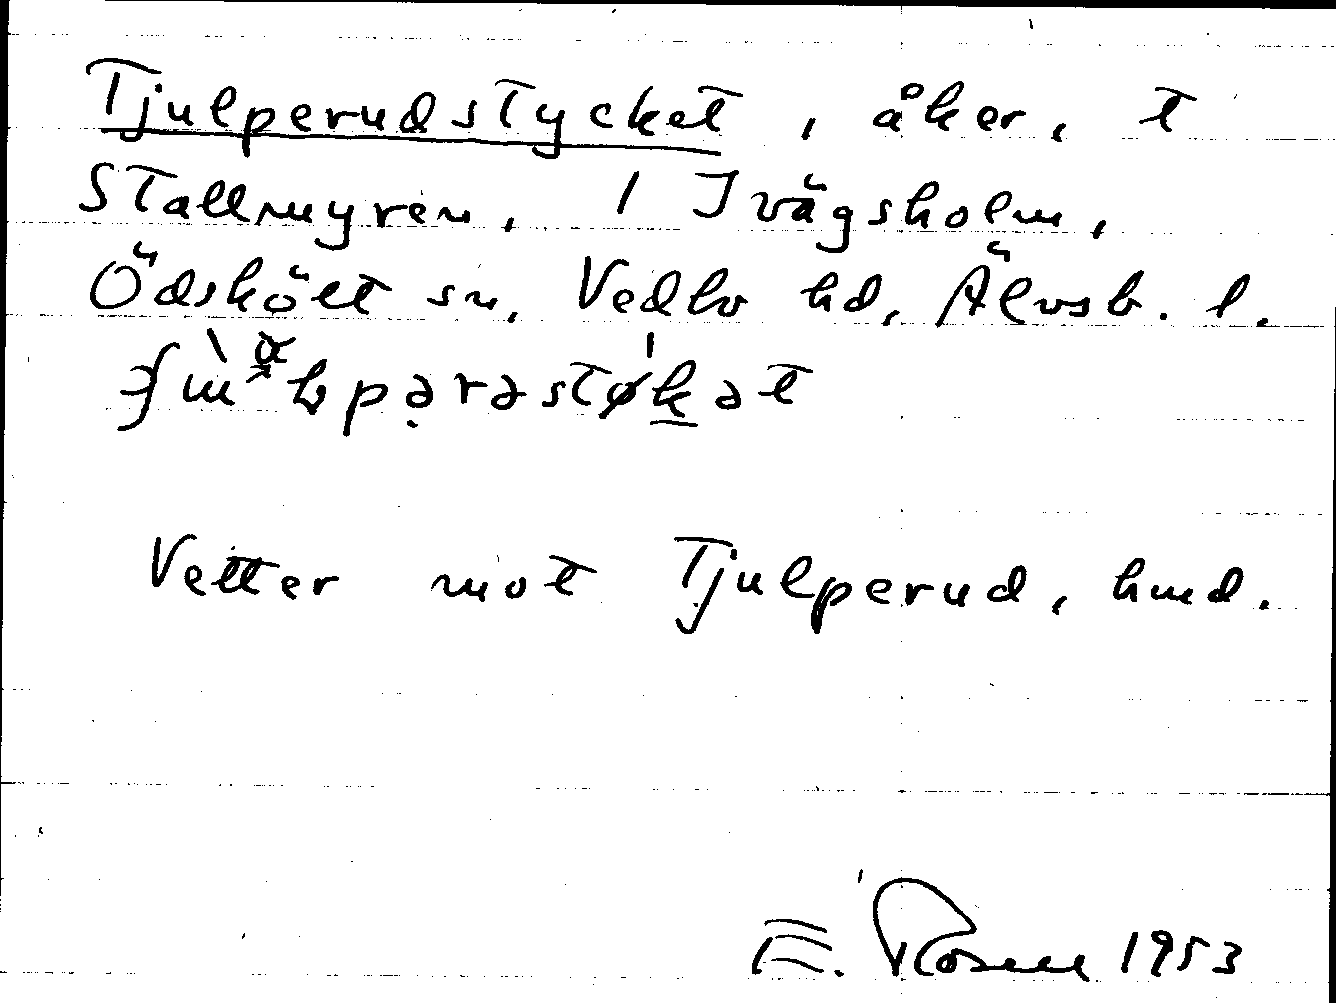 Tjulperudstycket, åker, t
Stallmyren, 1 Ivägsholm,
Ödskölt sn, Vedbo hd, Älvsb. l.
Vetter mot Tjulperud, hmd.
E. Rosell 1953